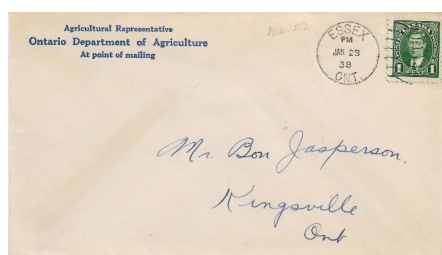 Agricultural Representative
Ontario Department of Agriculture
At point of mailing
ESSEX
PM
JAN 28
38
ONT.
1 1
Mr. Bon Jasperson.
Kingsville
Ont